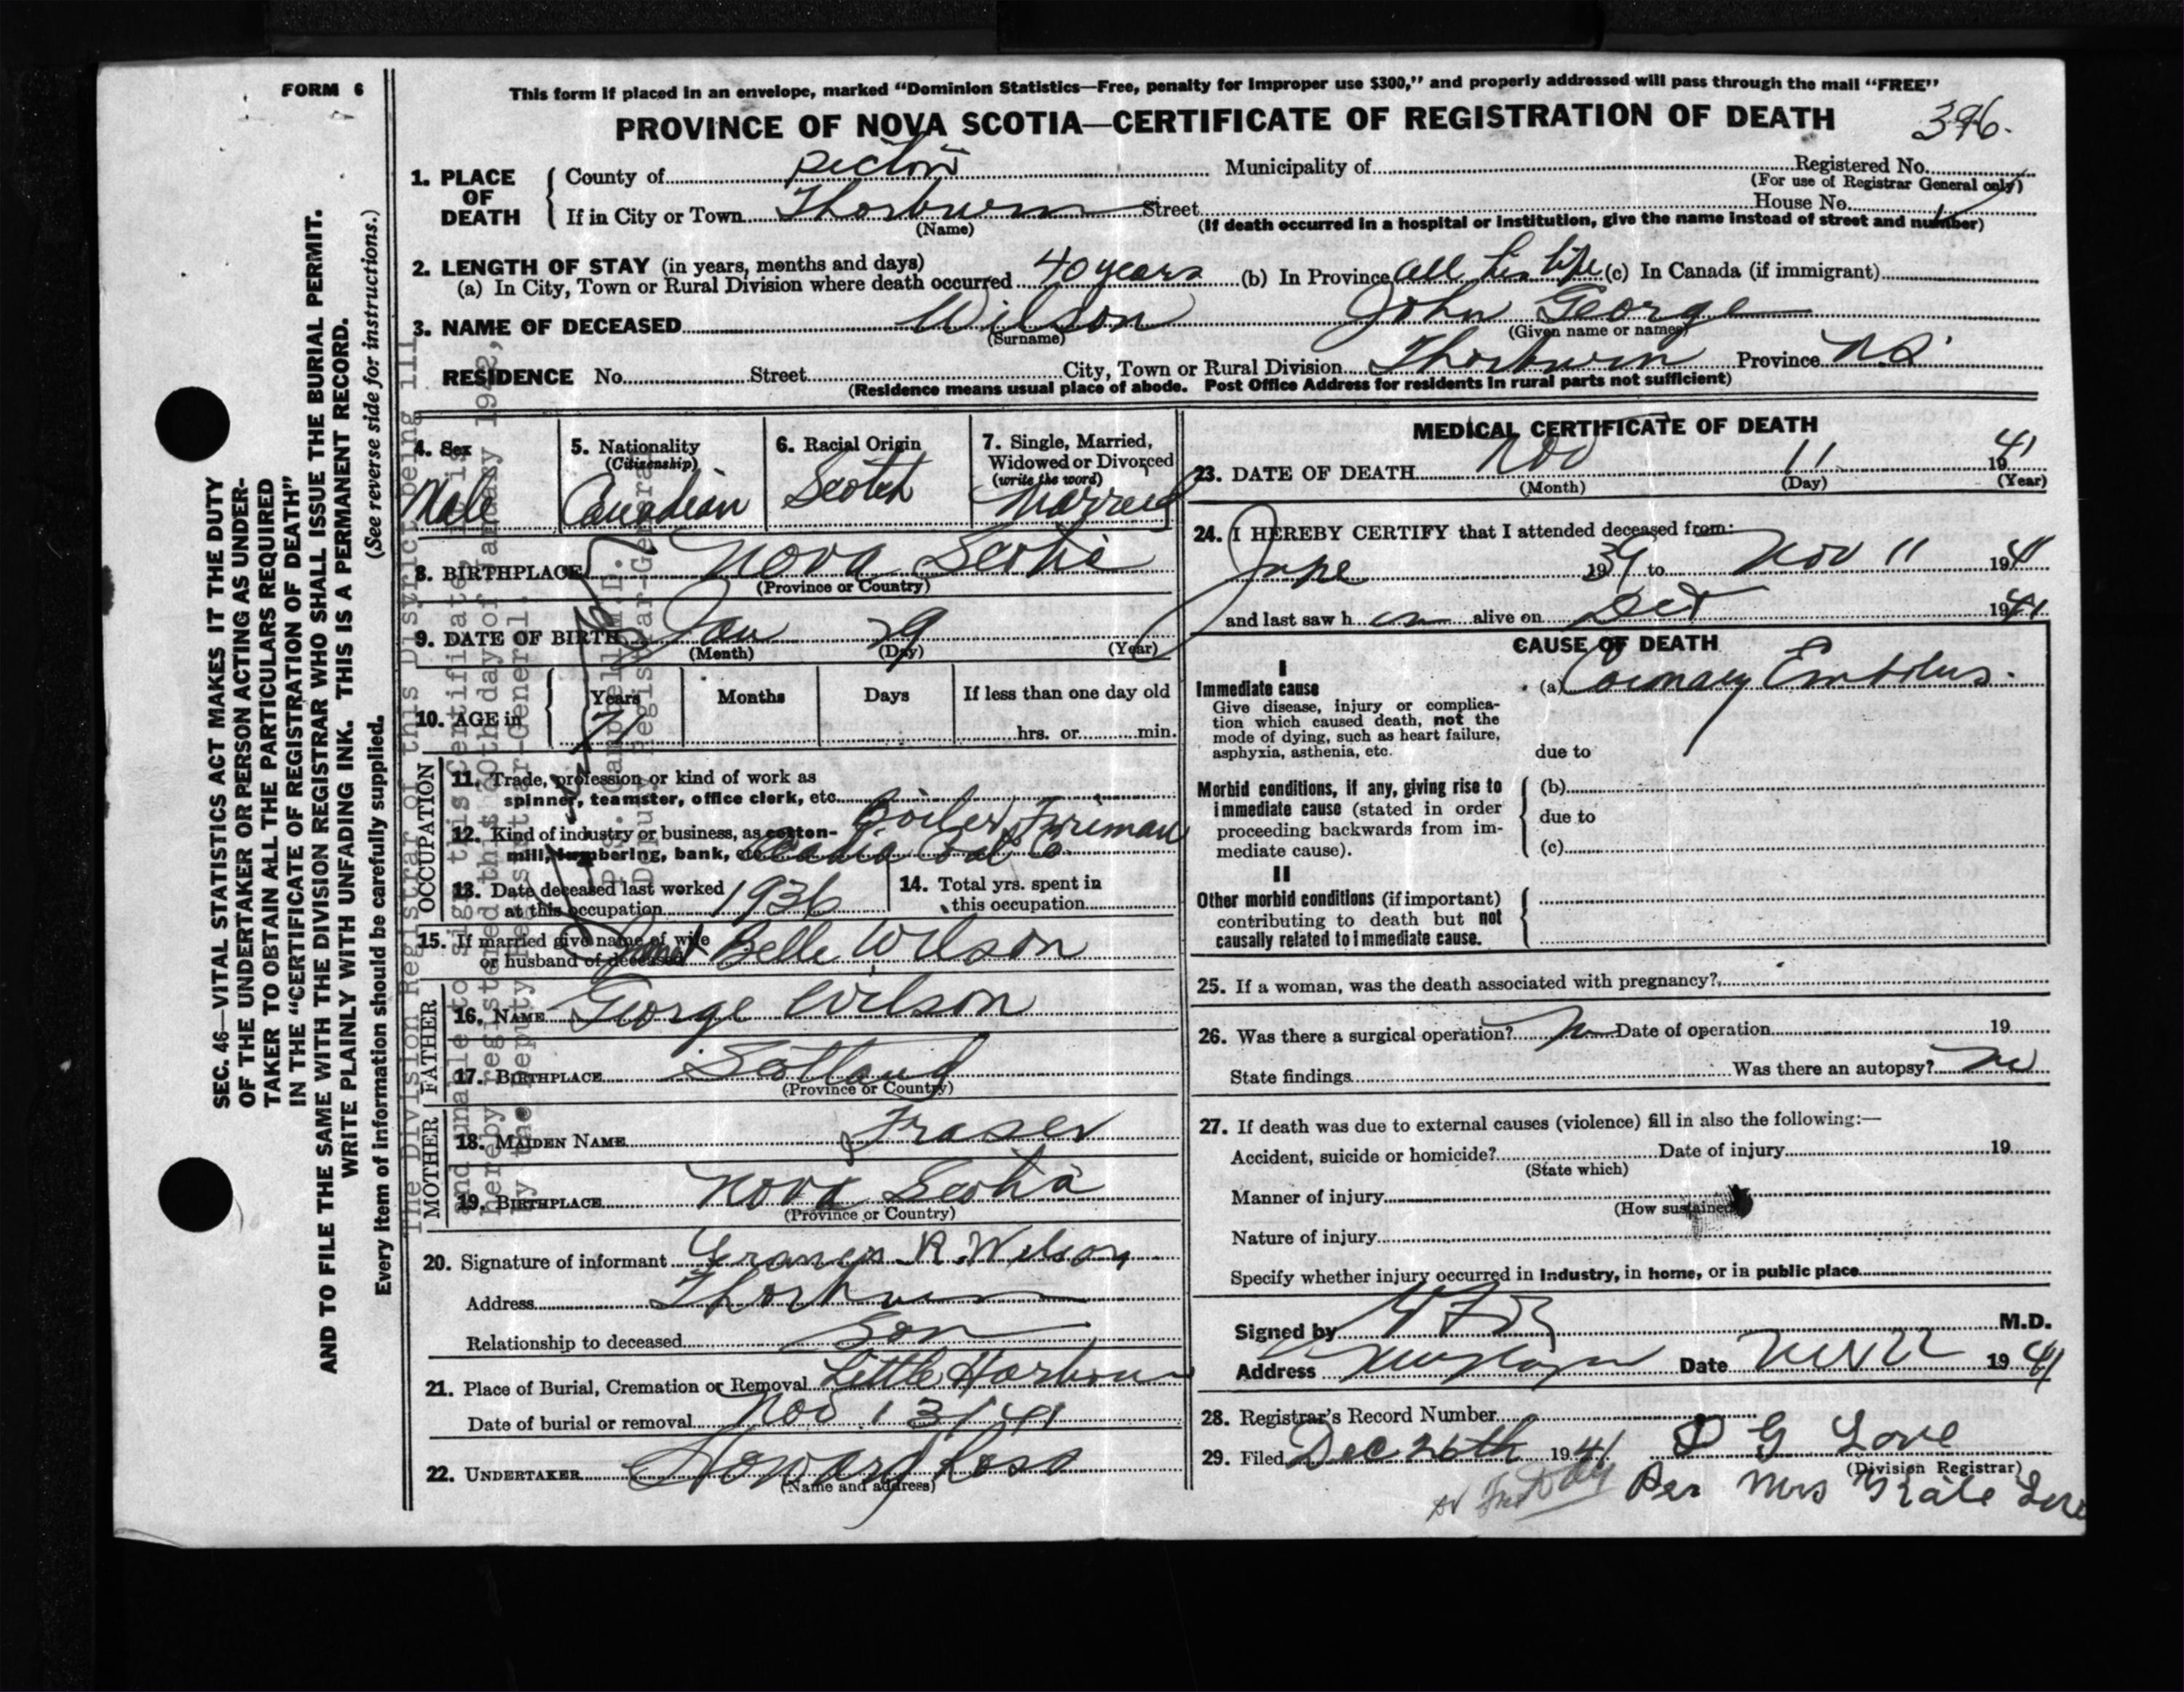 FORM 6
This form if placed in an envelope, marked “Dominion Statistics—Free, penalty for improper use $300,” and properly addressed will pass through the mail “FREE”
PROVINCE OF NOVA SCOTIA—CERTIFICATE OF REGISTRATION OF DEATH
376.
1. PLACE OF DEATH
County of Pictou Municipality of Registered No.
(For use of Registrar General only)
If in City or Town Thorburn Street House No.
(Name) (If death occurred in a hospital or institution, give the name instead of street and number)
2. LENGTH OF STAY (in years, months and days)
(a) In City, Town or Rural Division where death occurred 40 years (b) In Province all his life (c) In Canada (if immigrant)
3. NAME OF DECEASED Wilson John George
(Surname) (Given name or names)
RESIDENCE No. Street City, Town or Rural Division Thorburn Province N.S.
(Residence means usual place of abode. Post Office Address for residents in rural parts not sufficient)
4. Sex Male
5. Nationality (Citizenship) Canadian
6. Racial Origin Scotch
7. Single, Married, Widowed or Divorced (write the word) Married
8. BIRTHPLACE Nova Scotia
(Province or Country)
9. DATE OF BIRTH Jan 29
(Month) (Day) (Year)
10. AGE in Years 71 Months Days If less than one day old
hrs. or min.
OCCUPATION
11. Trade, profession or kind of work as
spinner, teamster, office clerk, etc. Boiler Fireman
12. Kind of industry or business, as cotton-
mill, lumbering, bank, etc. Acadia Coal Co
13. Date deceased last worked
at this occupation 1936
14. Total yrs. spent in
this occupation
15. If married give name of wife
or husband of deceased Janet Belle Wilson
FATHER
16. NAME George Wilson
17. BIRTHPLACE Scotland
(Province or Country)
MOTHER
18. MAIDEN NAME Fraser
19. BIRTHPLACE Nova Scotia
(Province or Country)
20. Signature of informant Francis R. Wilson
Address Thorburn
Relationship to deceased Son
21. Place of Burial, Cremation or Removal Little Harbour
Date of burial or removal Nov 13/41
22. UNDERTAKER Howard Ross
(Name and address)
MEDICAL CERTIFICATE OF DEATH
23. DATE OF DEATH Nov 11 1941
(Month) (Day) (Year)
24. I HEREBY CERTIFY that I attended deceased from:
June 1939 to Nov 11 1941
and last saw h im alive on Oct 1941
CAUSE OF DEATH
I
Immediate cause (a) Coronary Embolus.
Give disease, injury or complica-
tion which caused death, not the
mode of dying, such as heart failure,
asphyxia, asthenia, etc. due to
Morbid conditions, if any, giving rise to (b)
immediate cause (stated in order
proceeding backwards from im- due to
mediate cause). (c)
II
Other morbid conditions (if important)
contributing to death but not
causally related to immediate cause.
25. If a woman, was the death associated with pregnancy?
26. Was there a surgical operation? No Date of operation 19
State findings Was there an autopsy? No
27. If death was due to external causes (violence) fill in also the following:—
Accident, suicide or homicide? Date of injury 19
(State which)
Manner of injury
(How sustained)
Nature of injury
Specify whether injury occurred in industry, in home, or in public place
Signed by M.D.
Address Date 1941
28. Registrar's Record Number
29. Filed Dec 26th 1941 D G Love
(Division Registrar)
Per Mrs Kate Love
SEC. 46—VITAL STATISTICS ACT MAKES IT THE DUTY
OF THE UNDERTAKER OR PERSON ACTING AS UNDER-
TAKER TO OBTAIN ALL THE PARTICULARS REQUIRED
IN THE “CERTIFICATE OF REGISTRATION OF DEATH”
AND TO FILE THE SAME WITH THE DIVISION REGISTRAR WHO SHALL ISSUE THE BURIAL PERMIT.
WRITE PLAINLY WITH UNFADING INK. THIS IS A PERMANENT RECORD.
Every item of information should be carefully supplied. (See reverse side for instructions.)
The Division Registrar of this District being ill
and unable to sign this Certificate, it is
hereby registered this 30th day of January 1942,
by the Deputy Registrar-General.
Deputy Registrar-General